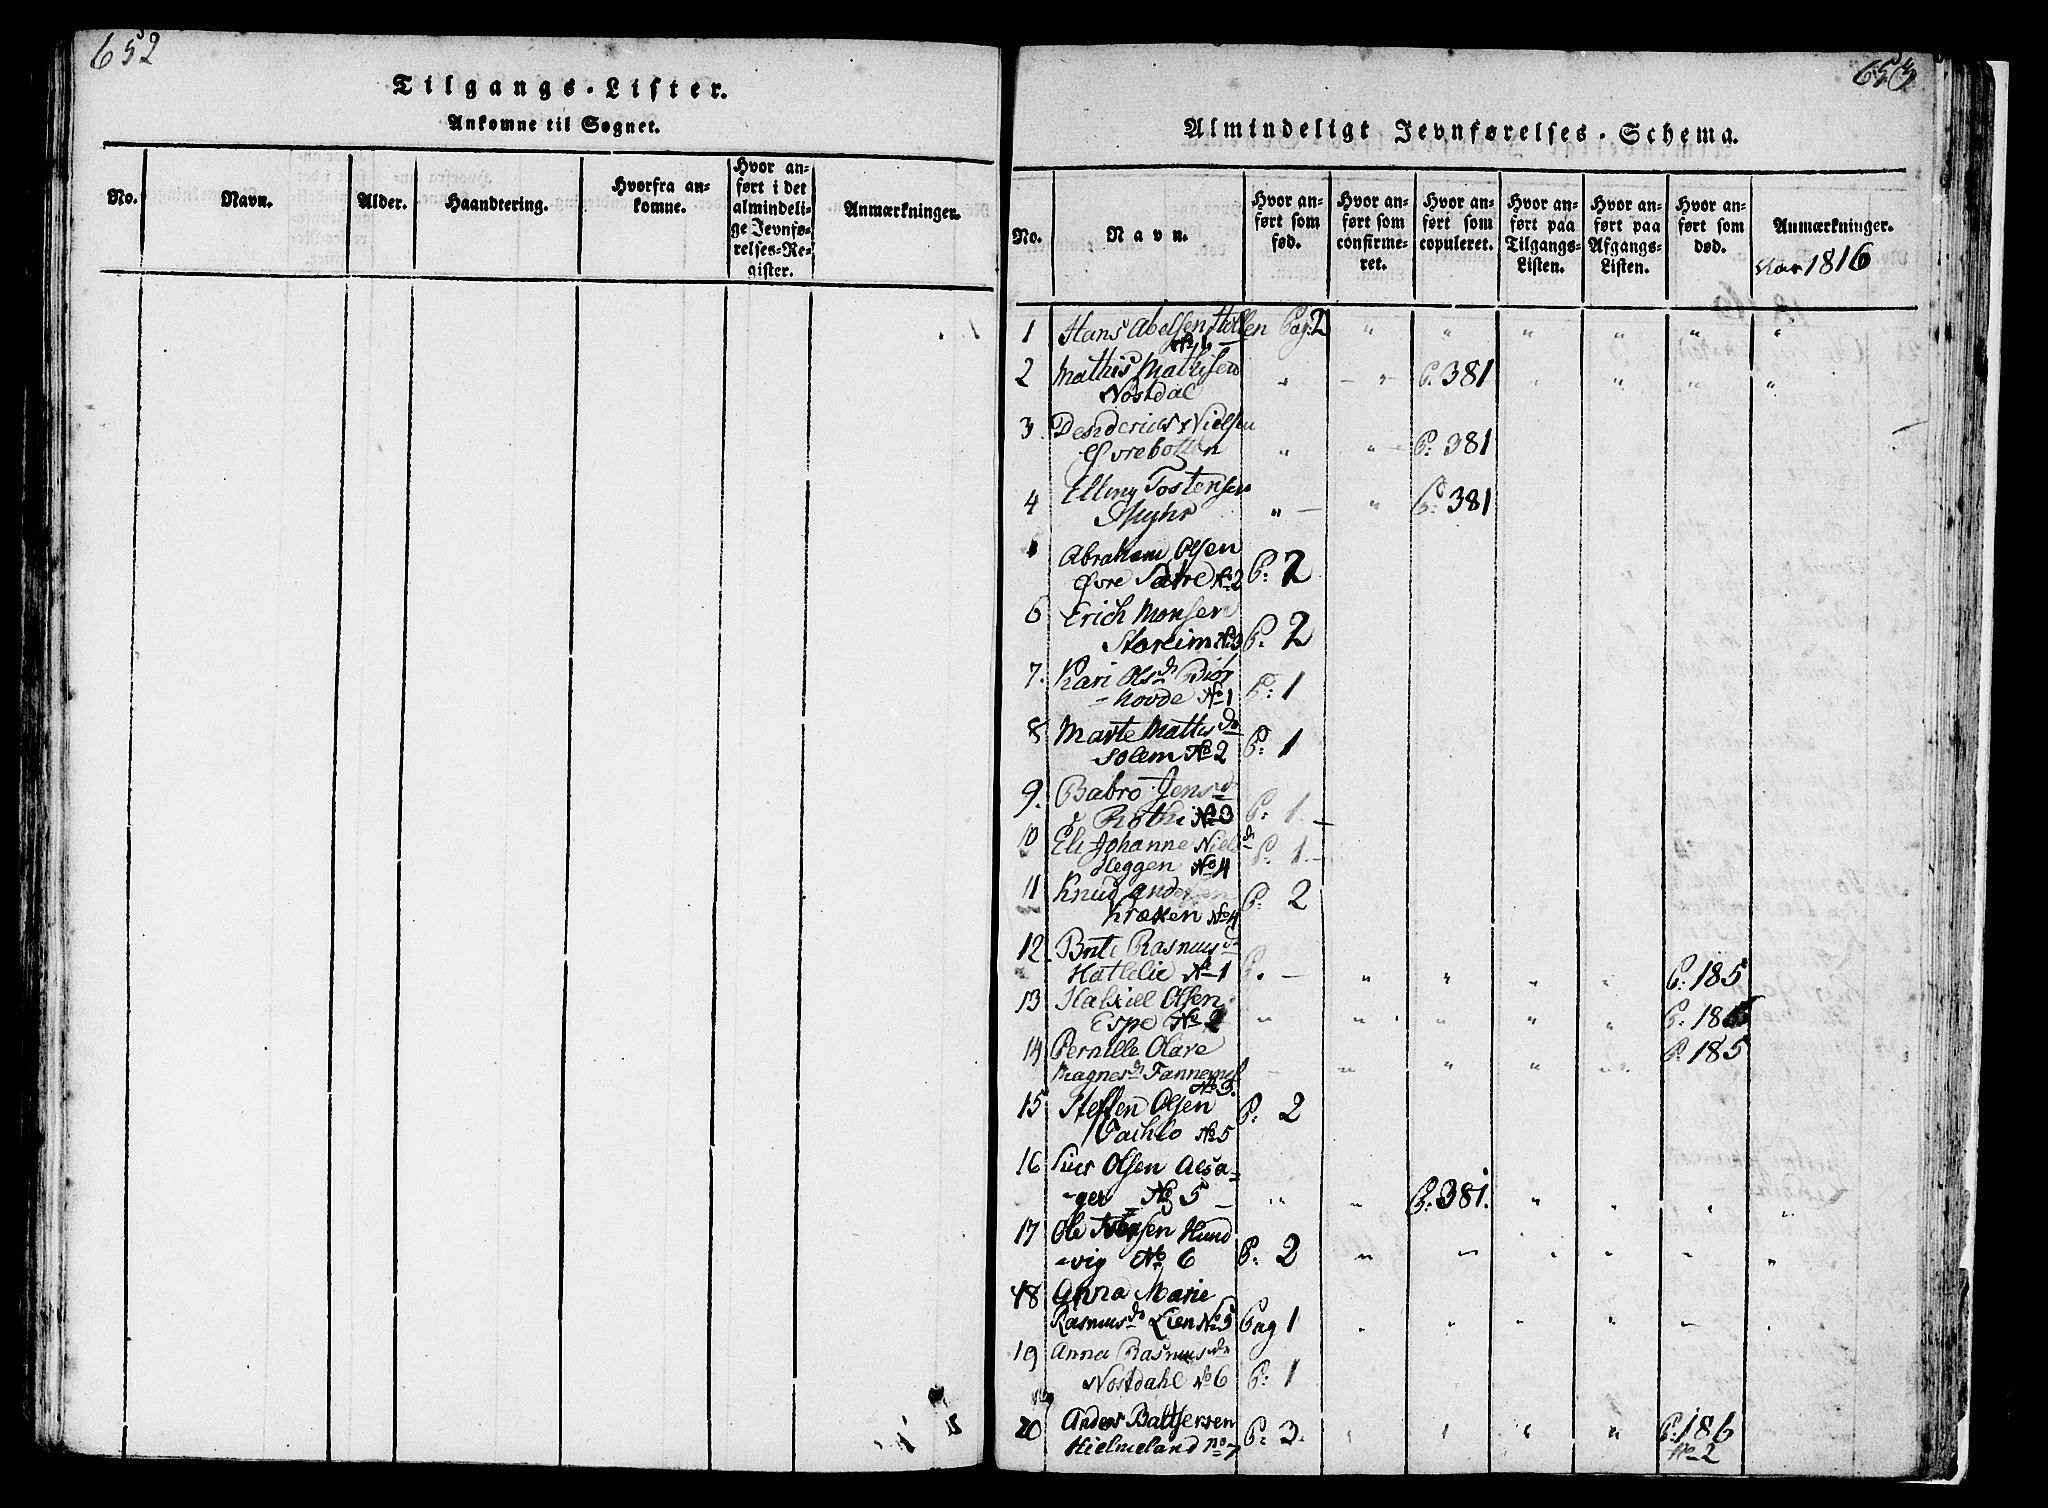 652
Tilgangs-Lister.
Ankomne til Sognet.
No.
Navn.
Alder.
Haandtering.
Hvorfra an-
komne.
Hvor an-
ført i det
almindeli-
ge Jevnfø-
relses-Re-
gister.
Anmærkninger.
653
Almindeligt Jevnførelses-Schema.
No.
Navn.
Hvor an-
ført som
fød.
Hvor an-
ført som
confirme-
ret.
Hvor an-
ført som
copuleret.
Hvor an-
ført paa
Tilgangs-
Listen.
Hvor an-
ført paa
Afgangs-
Listen.
Hvor an-
ført som
død.
Anmærkninger.
Aar 1816
1 Hans Abelsen Pag. 2 " " " " " "
No 1
2 Mathis Mathisen " " P. 381 " " " "
Nostdal
3. Desiderius Nielsen
Øvrebotten " " P: 381
4 Elling Tostensen
Myhr " " P: 381
Abraham Olsen
Øvre Sætre No 2 P: 2
6 Erich Monsen
Storeim No 3 P: 2
7. Kari Olsdr
hovde No 1 P: 1
8 Marte Mattisdr
Solem No 2 P: 1
9. Babro Jensdr
No 3 P: 1
10 Eli Johanne Nielsdr
Heggen No 4 P. 1
11 Knud Andersen
No 4 P: 2
12. Brite Rasmusdr
No 1 P. " " " " P: 185
13 Olsen
Espe No 2 " " " " " P: 185
14 Pernille Olave P: 185
Magnesdr " " " " "
No 3.
15 Steffen Olsen P: 2
No 5
16 Olsen Alsa-
ger No 5 " " P: 381. " " " "
17 Ole Hund
vig No 6 P: 2 " " " " " "
18 Anna Marie
Rasmusdr Lien No 5 Pag 1
19 Anna Rasmusdr
Nostdahl No 6 P: 1
20 Anders Baltsersen
Hielmeland No 7 P: 3. " " " " P: 186
No 2